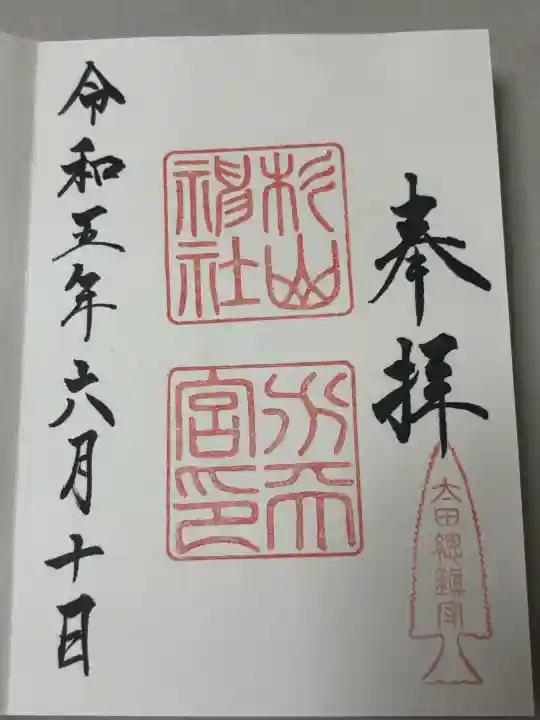 奉拝
太田総鎮守
杉山
神社
水天
宮印
令和五年六月十日